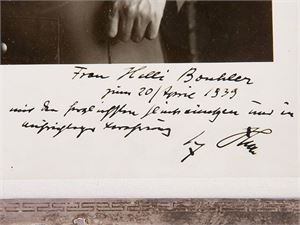 Frau Helli Bouhler
zum 20/April 1939
mit den herzlichsten Glückwünschen und in
aufrichtiger Verehrung